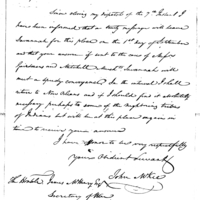 Since closing my dispatch of the 7th Instant I
have been informed that a trusty messenger will leave
Savannah for this place on the 1st day of September
and that your answer if sent to the care of Major
Habersham and Mitchell Savannah will
meet a speedy conveyance. In the interval I shall
return to New Orleans and if I should find it absolutely
necessary perhaps to some of the neighboring tribes
of Indians but will be at this place again in
time to receive your answer
I have Honor to be very respectfully
Your Obedient Servant
John McKee
The Honble James McHenry Esqr
Secretary of War